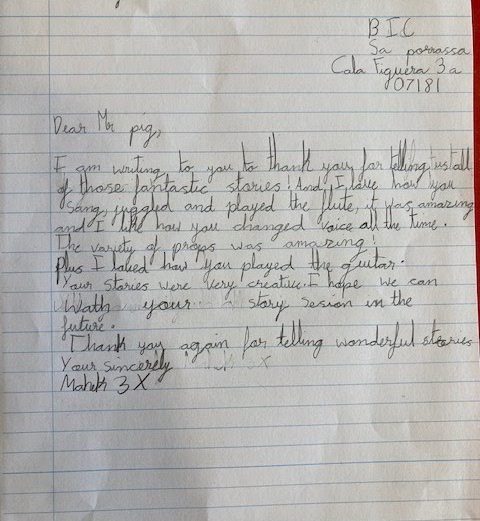 BIC
Sa porrassa
Cala Figuera 3a
07181
Dear Mr pig,
I am writing to you to thank you for telling us all
of those fantastic stories! And I love how you
Sang juggled and played the flute, it was amazing
and I like how you changed voice all the time.
The variety of props was amazing!
Plus I loved how you played the guitar.
Your stories were very creative. I hope we can
Wath your story sesion in the
future.
Thank you again for telling wonderful stories
Your sincerely
Mahek 3X